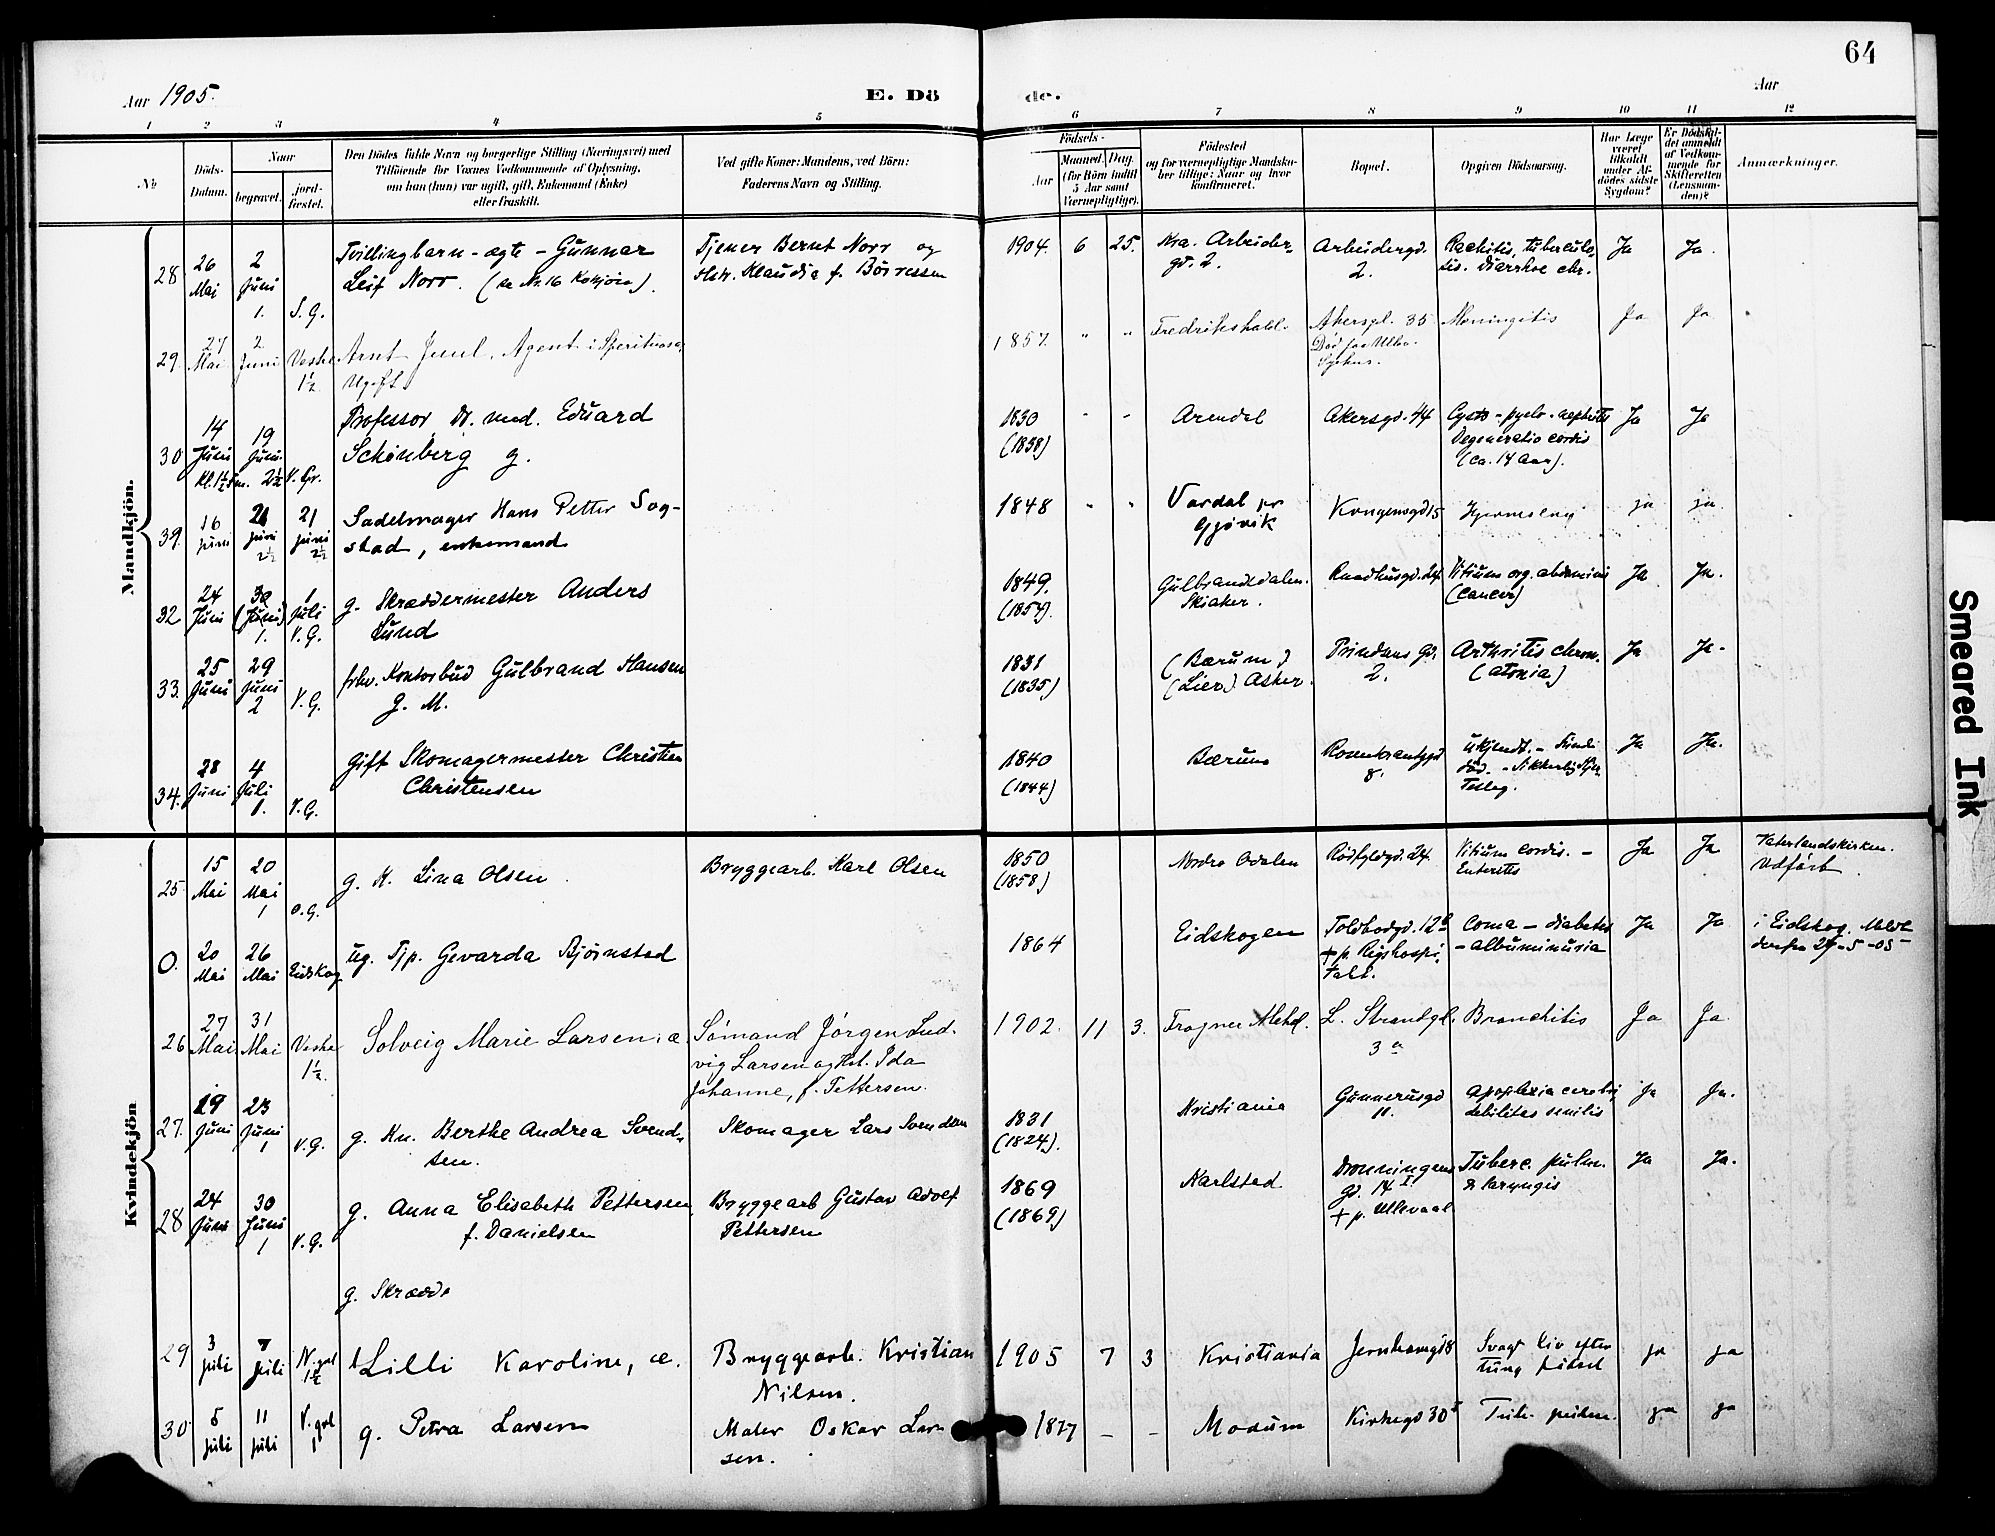 64
Aar 1905.
E. Dö
de.
Aar
1 2 3 4 5 6 7 8 9 10 11 12
No
Döds-Datum.
Naar
begravet.
jordfæstet.
Den Dödes fulde Navn og borgerlige Stilling (Næringsvei) med
Tilföiende for Voxnes Vedkommende af Oplysning,
om han (hun) var ugift, gift, Enkemand (Enke)
eller fraskilt.
Ved gifte Koner: Mandens, ved Börn:
Faderens Navn og Stilling.
Födsels-
Aar
Maaned. Dag.
(for Börn indtil
5 Aar samt
Værnepligtige).
Födested
og for værnepligtige Mandskaber tillige: Naar og hvor
konfirmeret.
Bopæl.
Opgiven Dödsaarsag.
Har Læge
været
tilkaldt
under Afdödes sidste
Sygdom?
Er Dödsfaldet anmeldt
af Vedkommende for
Skifteretten
(Lensmanden)?
Anmærkninger.
Mandkjön.
28 26 Mai 2 Juni 1. S. G.
Tvillingbarn - ægte - Gunnar
Leif Norr.
Tjener Bernt Norr og
Hstr. Klaudia f. Börressen
1904. 6 25. Kra. Arbeidergd. 2. Arbeidergd. 2. Rachitis, tuberculosis. diarrhoe chr. Ja Ja.
29. 27 Mai 2 Juni Vestre 1½
Arnt Juul, Agent i Spirituosa,
Ugift
1857. " " Fredrikshald. Akerspl. 35
Død paa Ullev.
Sygehus.
Meningitis Ja Ja
30 14 Juni 19 Juni 2½ V. Gr.
Professor Dr. med. Eduard
Schönberg g.
1830 (1858) " " Arendal Akersgd. 44 Cysto-pyelo-nephritis
Degeneratio cordis
(ca. 14 Aar).
Ja Ja
39. 16 juni 21 juni 2½ 21 juni 2½
Sadelmager Hans Petter Sogstad, enkemand
1848 " " Vardal pr
Gjøvik
Kongensgd 15 ja ja.
32 24 Juni 30 (Juni) 1. 1 Juli V. G.
g. Skræddermester Anders
Lund
1849. (1854). Gulbrandsdalen.
Skiaker.
Raadhusgd. 24. Vitium org. abdominis
(cancer)
Ja Ja.
33. 25 Juni 29 Juni 2 V. G.
fhv. Kontorbud Gulbrand Hansen
G. M.
1831 (1835) (Bærum)
(Lier) Asker.
Prindsens Gd.
2.
Arthritis chron.
(atonia)
Ja Ja.
34. 28 Juni 4 Juli 1. V. G.
Gift Skomagermester Christian
Christensen
1840 (1844) Bærum Rosenkrantzgd
8.
Ukjendt.
Ja Ja.
Kvindekjön
25. 15 Mai 20 Mai 1 O. G.
g. K. Lina Olsen
Bryggearb. Karl Olsen
1850 (1858) Nordre Odalen Rødfyldgd. 24. Vitium cordis. -
Enteritis
Ja Ja Vaterlandskirken.
Udført
O. 20 Mai 26 Mai Eidskog
ug. Tjp. Gevarda Bjørnstad
1864 Eidskogen Toldbodgd. 12
+ p. Rigshospitalt.
Coma - diabetes
- albuminuria
Ja Ja i Eidskog. Meldt
derfra 27-5-05
26 27 Mai 31 Mai Vestre 1½.
Solveig Marie Larsen, æ.
Sømand Jörgen Ludvig Larsen og Hst. Ida
Johanne, f. Pettersen.
1902. 11 3. Frogner Mehd. L. Strandgd.
3 a
Bronchitis Ja Ja.
27. 19 Juni 23 Juni 1 V. G.
g. Kn. Berthe Andrea Svendsen.
Skomager Lars Svendsen
1831 (1824). Kristiania Gunnerusgd
11.
apoplexia cerebri
debilitas senilis
Ja Ja.
28 24 Juni 30 Juni 1 V. G.
g. Anna Elisabeth Pettersen
f. Danielsen
Bryggearb Gustav Adolf
Pettersen
1869 (1869) Karlstad. Dronningens
gd. 14 I
+ p. Ullevaal
Tuberc. pulm.
& laryngis
Ja Ja.
g. Skrædde
29 3 juli 7 juli 1½
Lilli Karoline, æ.
Bryggearb. Kristian
Nilsen.
1905 7 3 Kristiania Svagt liv efter
tung fødsel
ja ja
30 5 juli 11 juli V. grl 1
g. Petra Larsen
Maler Oskar Larsen.
1877 - - Modum Kirkegd 30 I Tub. pulm. ja ja
Smeared Ink